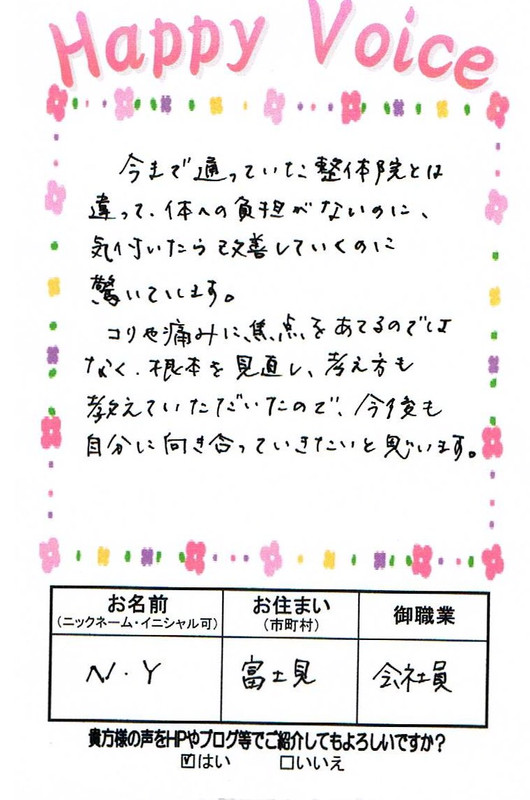 Happy Voice
今まで通っていた整体院とは
違って、体への負担がないのに、
気付いたら改善していくのに
驚いています。
コリや痛みに焦点をあてるのでは
なく、根本を見直し、考え方も
教えていただいたので、今後も
自分に向き合っていきたいと思います。
お名前 お住まい 御職業
(ニックネーム・イニシャル可) (市町村)
N・Y 富士見 会社員
貴方様の声をHPやブログ等でご紹介してもよろしいですか?
☑はい □いいえ